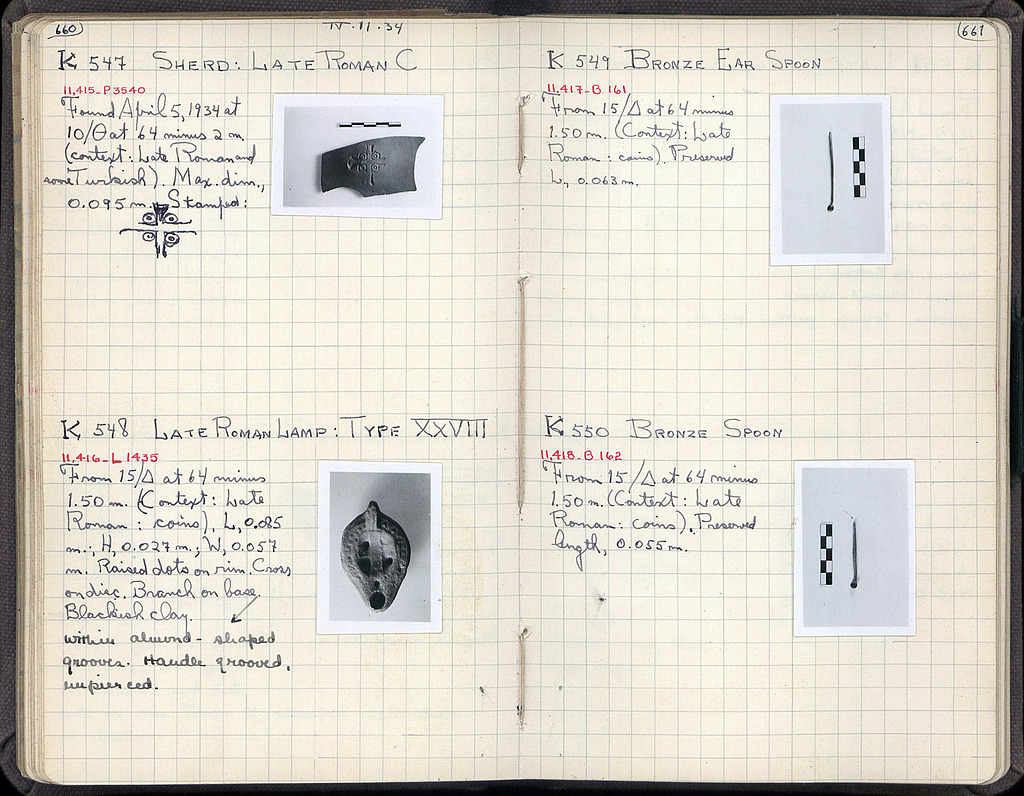 660
IV.11.34
K 547 SHERD: LATE ROMAN C
11,415-P3540
Found April 5, 1934 at
10/Θ at 64 minus 2 m.
(context: Late Roman and
some Turkish). Max. dim.,
0.095 m. Stamped:
K 548 LATE ROMAN LAMP: TYPE XXVIII
11,416-L 1435
From 15/Δ at 64 minus
1.50 m. (Context: Late
Roman : coins). L, 0.085
m.; H, 0.027 m.; W, 0.057
m. Raised dots on rim. Cross
on disc. Branch on base.
Blackish clay.
within almond-shaped
grooves. Handle grooved,
unpierced.
661
K 549 BRONZE EAR SPOON
11,417-B 161
From 15/Δ at 64 minus
1.50 m. (Context: Late
Roman : coins). Preserved
L, 0.063 m.
K 550 BRONZE SPOON
11,418-B 162
From 15/Δ at 64 minus
1.50 m. (Context: Late
Roman: coins). Preserved
length, 0.055 m.